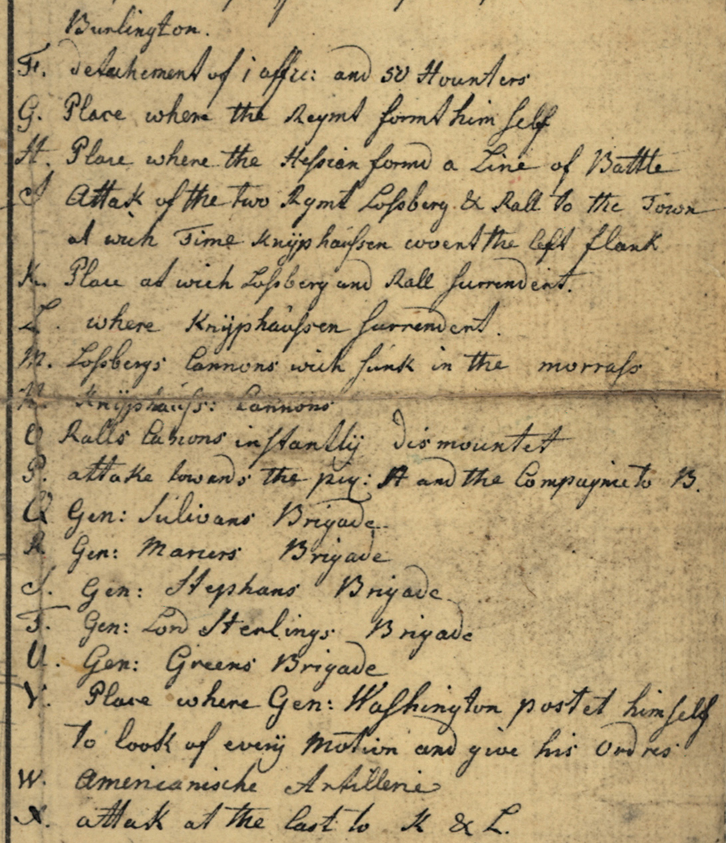 Burlington.
F. detachement of 1 offic: and 50 Hounters
G. Place where the Reymt formt him self
H. Place where the Hessian formd a Line of Battle
J Attak of the two Rgmt Lossberg & Rall to the Town
at wich Time Knÿphaussen covent the left flank
K. Place at wich Lossberg and Rall surrendert.
L. where Knÿphaussen surrendert.
M. Lossbergs Cannons wich sunk in the morrass
N Knÿphauss: Cannons
O Ralls Canons instantlÿ dismountet
P. attake towards the piq: A and the Compagnie to B.
Q Gen: Sulivans Brigade
R Gen: Brigade
S. Gen: Stephans Brigade
T. Gen: Lord Sterlings Brigade
U. Gen: Greens Brigade
V. Place where Gen: Washington postet himself
to look of everÿ Motion and give his Ordres
W. Americanische Artillerie
X. attak at the last to K & L.